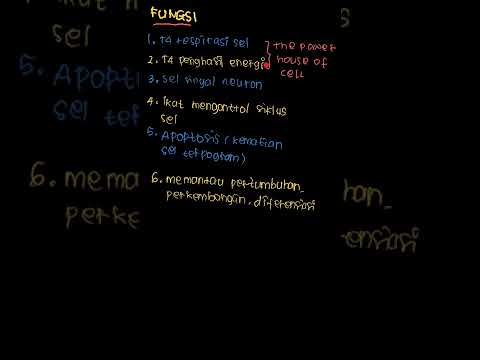 FUNGSI
1. T4 respirasi sel
2. T4 penghasi energi
the power
house of
cell
3. sel sinyal neuron
4. ikat mengontrol siklus
sel
5. Apoptosis (kematian
sel terpogram)
6. memantau pertumbuhan
perkembangan, diferensiasi
5. Apopt
sel ter
6. meman
perke
han
ensiasi